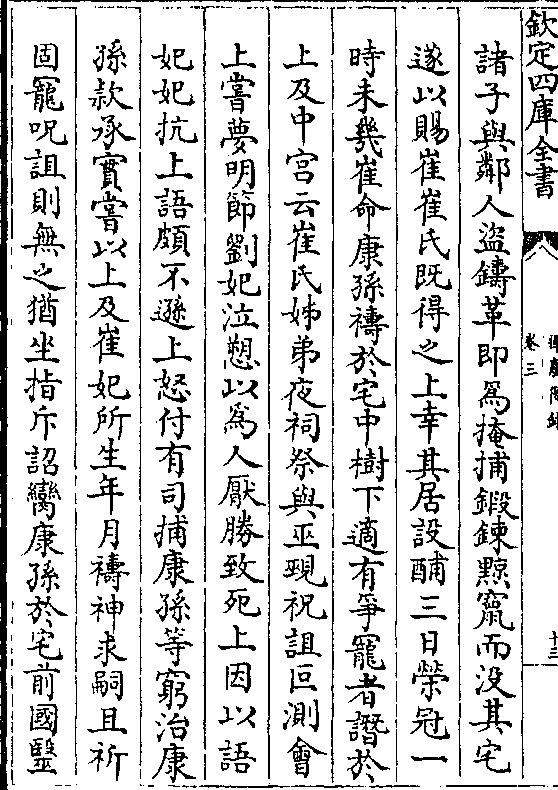 欽定四庫全書
卷三
十三
諸子與鄰人盜鑄革即爲掩捕鍛鍊黥竄而没其宅
遂以賜崔崔氏既得之上幸其居設酺三日榮冠一
時未幾崔命康孫禱於宅中樹下適有爭寵者譖於
上及中宮云崔氏姊弟夜祠祭與巫覡祝詛叵測會
上嘗夢明節劉妃泣愬以爲人厭勝致死上因以語
妃妃抗上語頗不遜上怒付有司捕康孫等窮治康
孫款承實嘗以上及崔妃所生年月禱神求嗣且祈
固寵呪詛則無之猶坐指斥詔臠康孫於宅前國醫